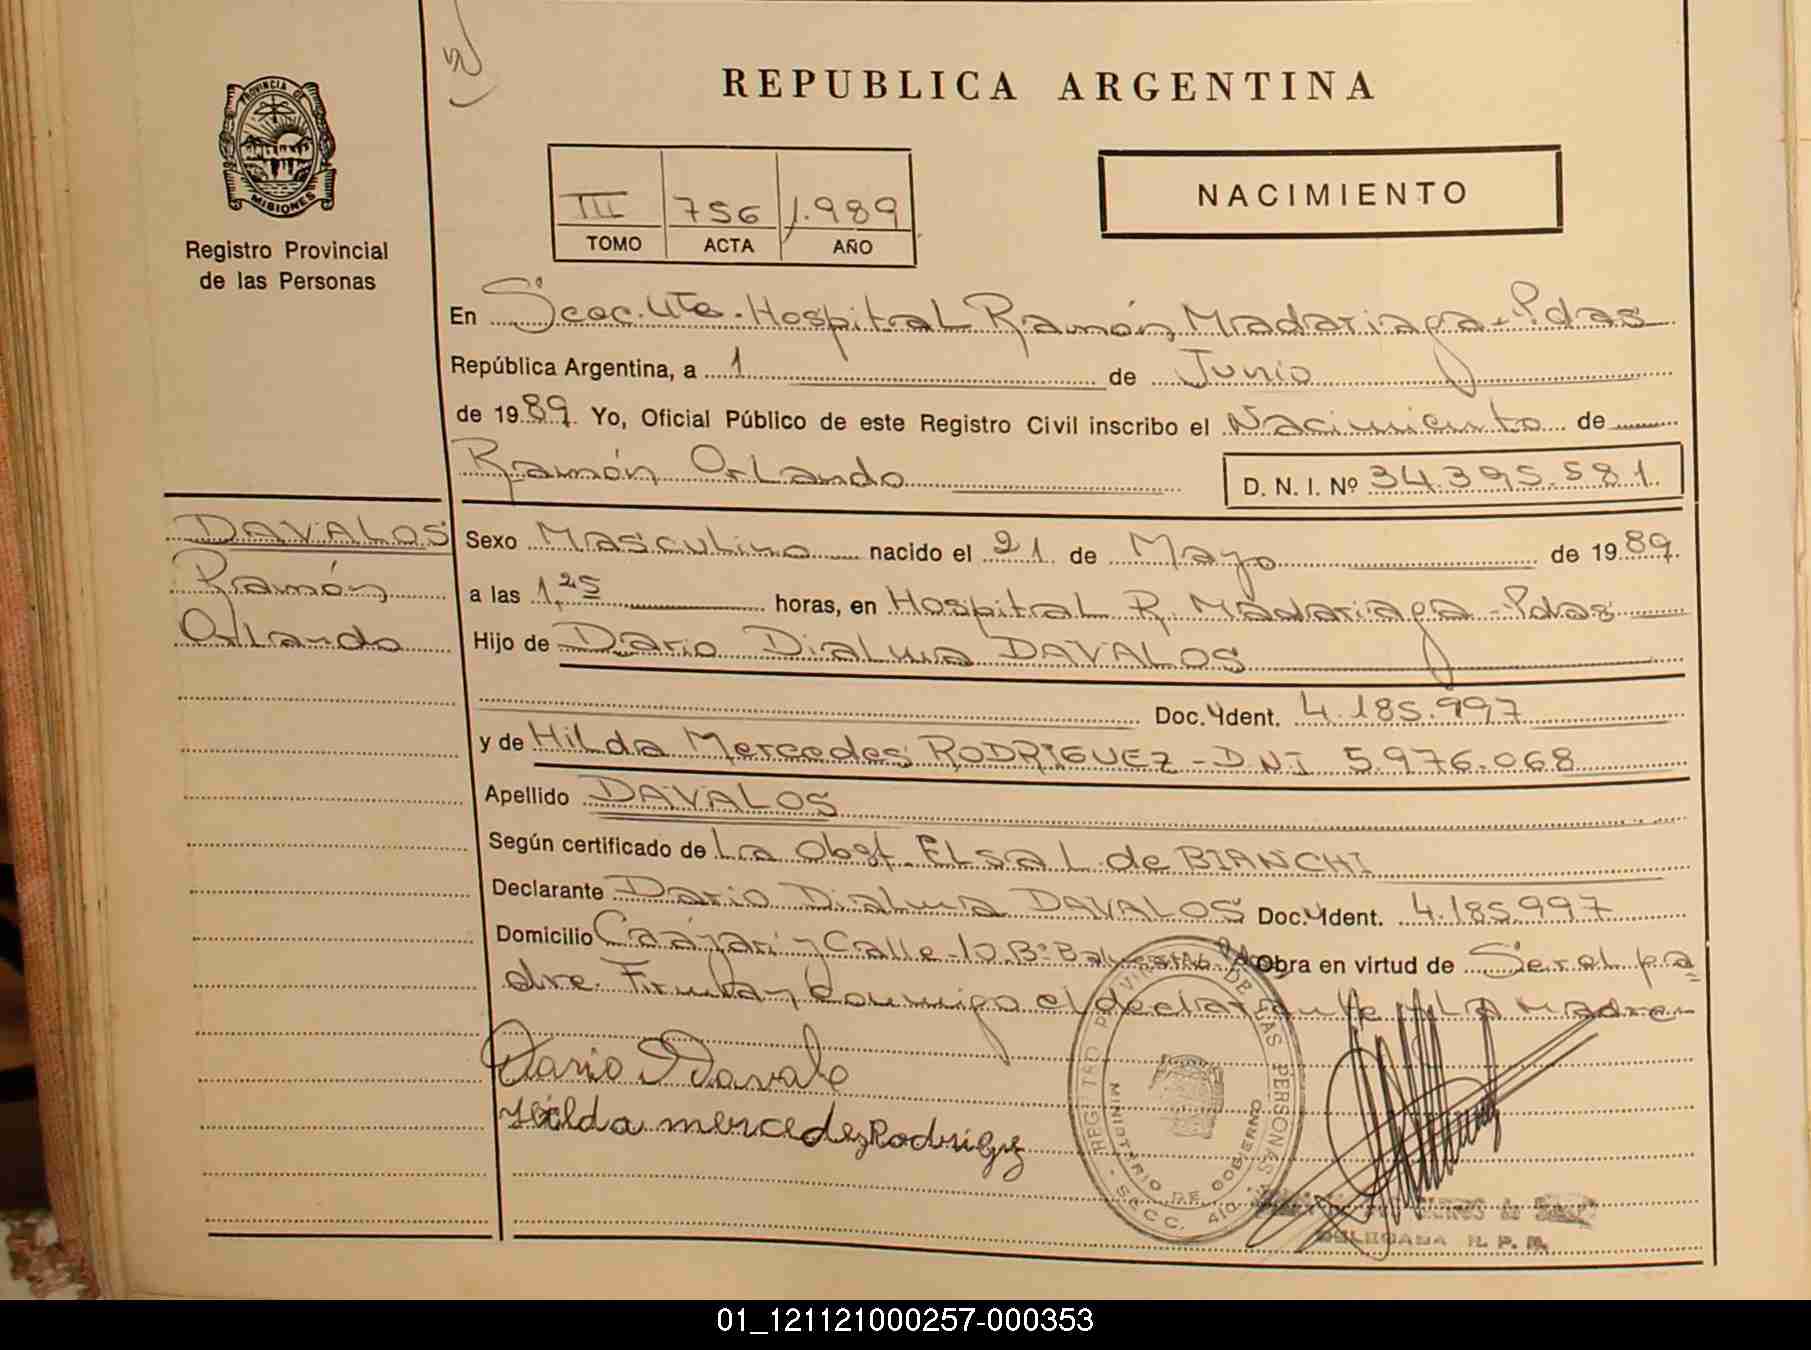 PROVINCIA DE
MISIONES
Registro Provincial
de las Personas
REPUBLICA ARGENTINA
III 756 1.989
TOMO ACTA AÑO
NACIMIENTO
En Secc. 4ta. Hospital Ramón Madariaga - Pdas
República Argentina, a 1 de Junio
de 1989. Yo, Oficial Público de este Registro Civil inscribo el Nacimiento de
Ramón Orlando D. N. I. Nº 34.395.581.
DAVALOS
Ramón
Orlando
Sexo Masculino nacido el 21 de Mayo de 1989.
a las 1,25 horas, en Hospital R. Madariaga - Pdas
Hijo de Dario Dialma DAVALOS
Doc. Ydent. 4.185.997
y de Hilda Mercedes RODRIGUEZ - DNI 5.976.068
Apellido DAVALOS
Según certificado de La Obst. ELSA L. de BIANCHI
Declarante Dario Dialma DAVALOS Doc. Ydent. 4.185.997
Domicilio Caáyarí y Calle 10 Bº Obra en virtud de Ser el pa-
dre. Firman conmigo el declarante y LA Madre.
Dario Davalo
Hilda mercedez Rodrigez
REGISTRO PROVINCIAL DE LAS PERSONAS
MINISTERIO DE GOBIERNO
SECC. 4ta
DELEGADA R. P. P.
01_121121000257-000353